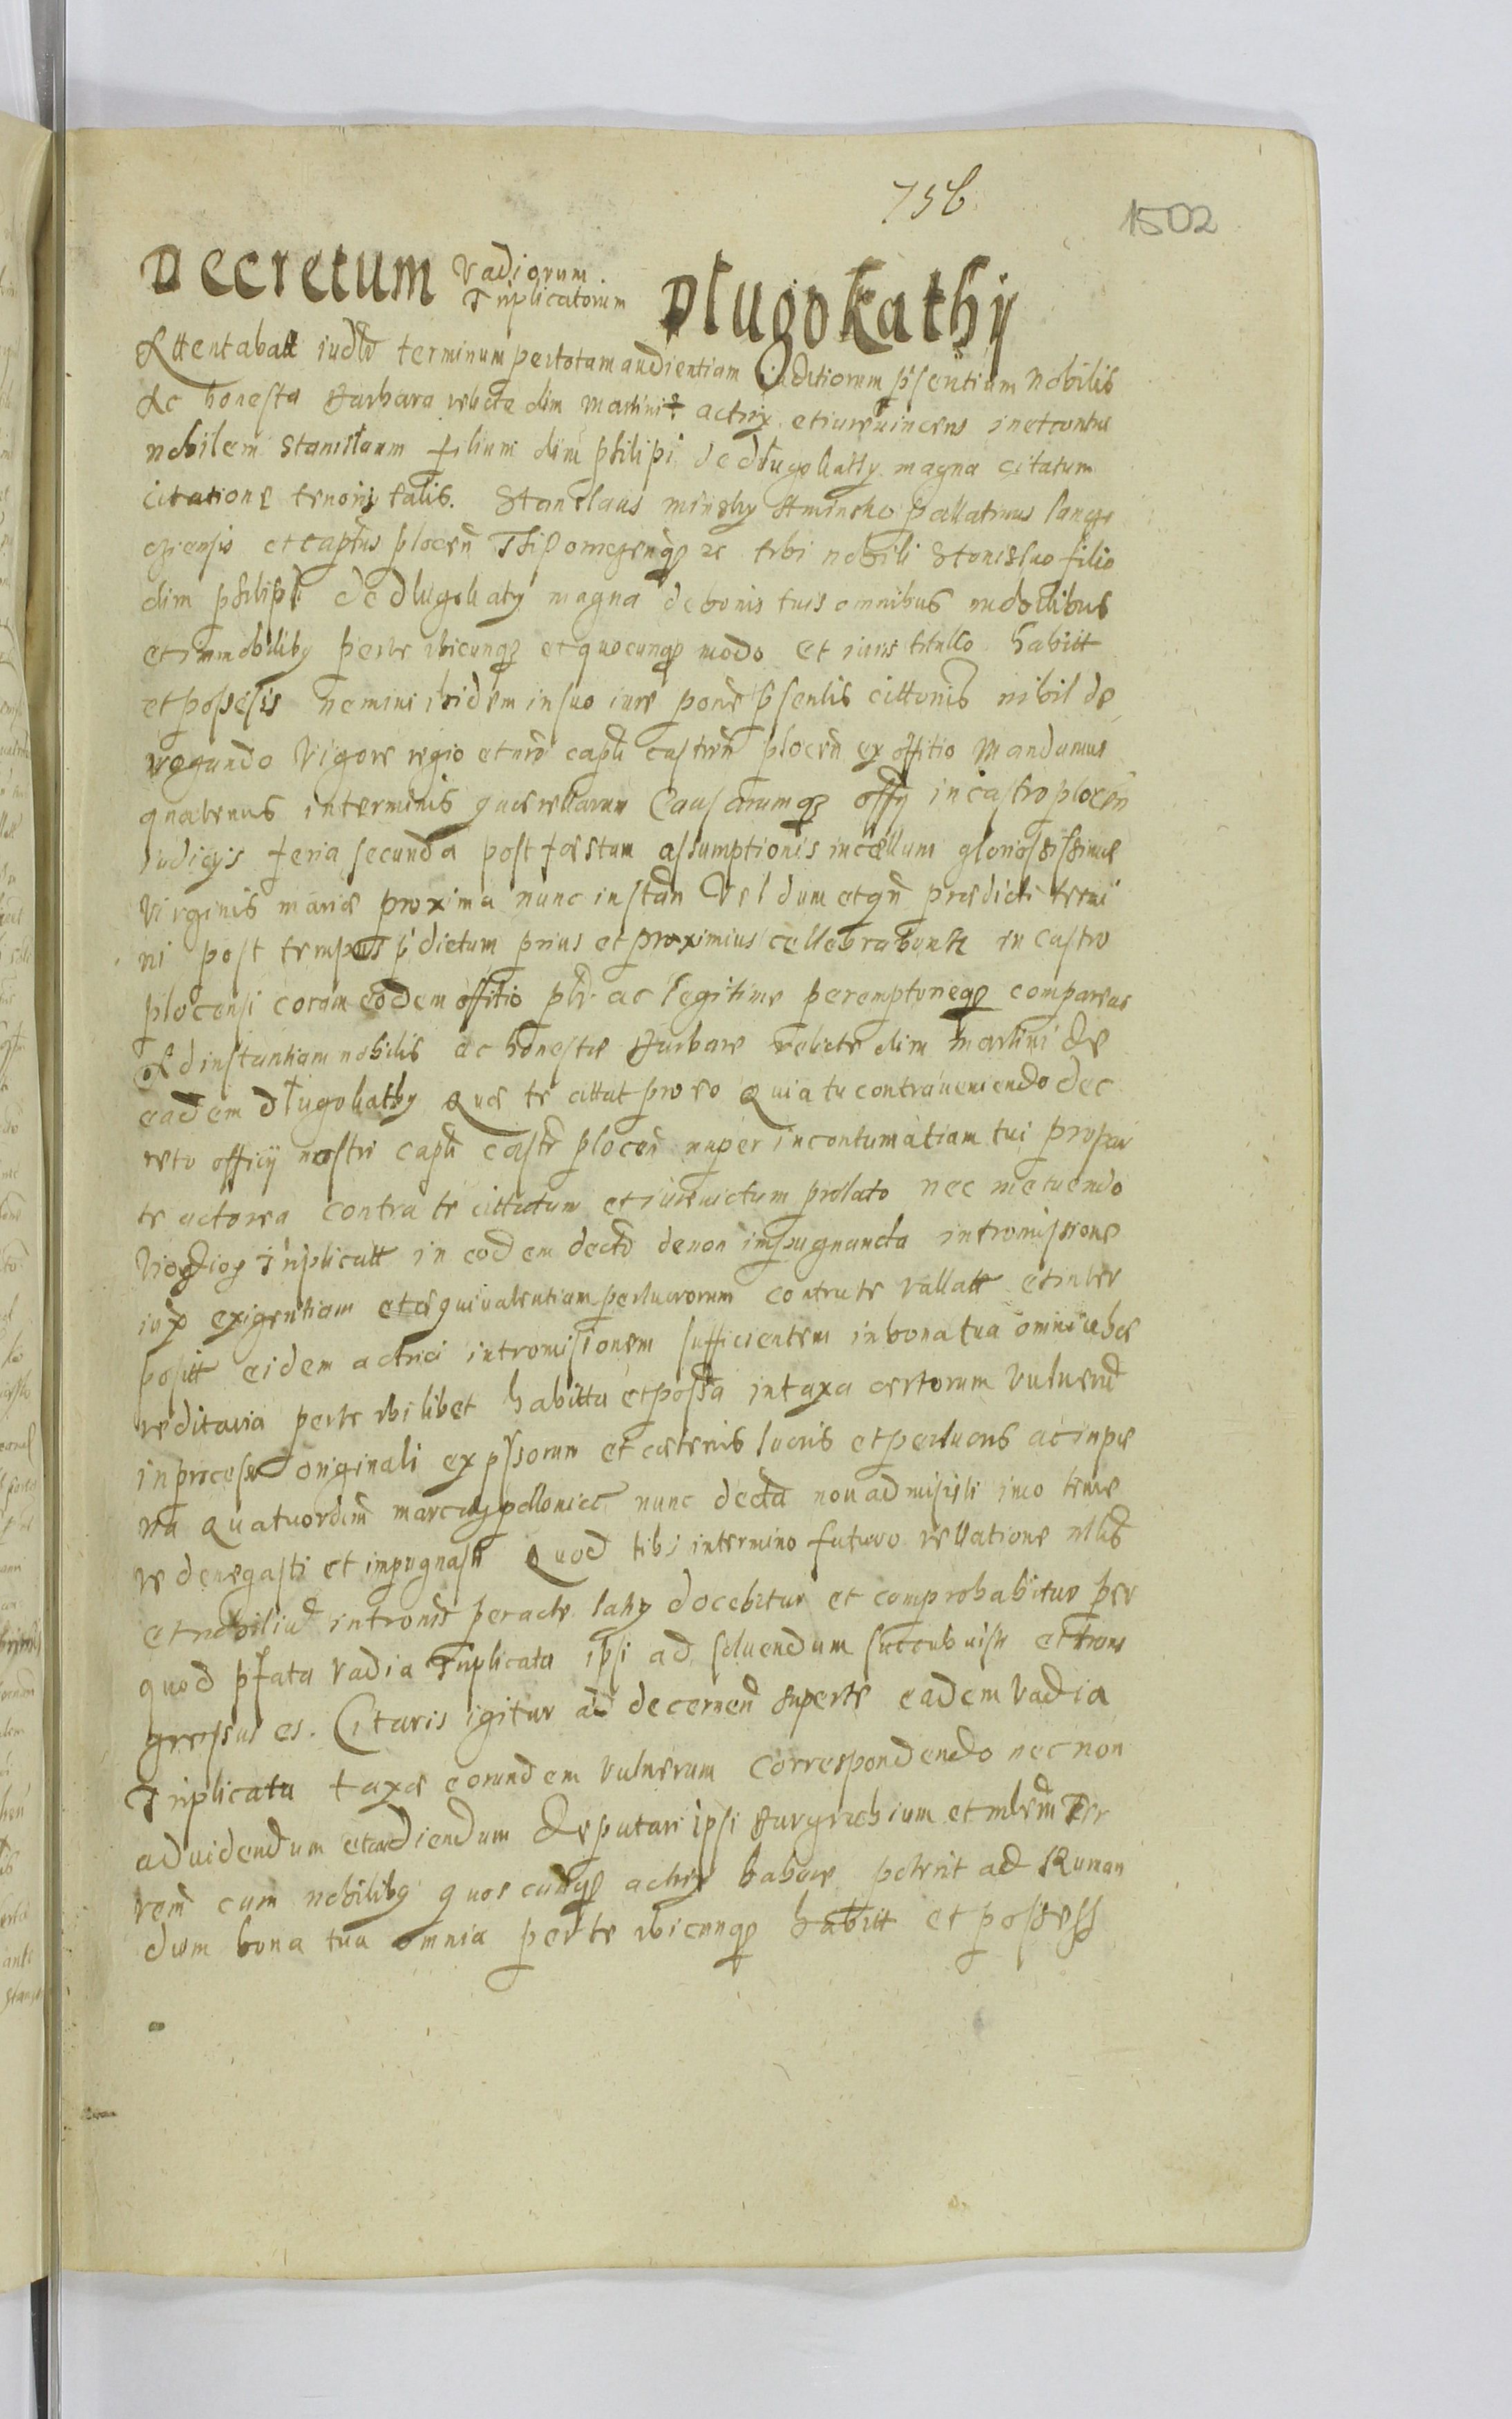 756
1502
Decretum Vadiorum Triplicatorum Dlugokathy
Attentabatt iudtr terminum per totam audientiam iuditiorum psentium Nobilis
Ac honesta Barbara relicta olim Martini actrix et iure vincens in et contra
nobilem Stanislaum filium olim philipi de dlugokathy magna citatum
citatione tenoris talis. Stanislaus minsky de minsko pallatinus lancz
cziensis et captus plocen tibi nobili Stanislao filio
olim philipi de dlugokaty magna de bonis tuis omnibus mobilibus
et immobiliby per te ubicunq et quocunq modo et iuris titullo habitt
et possesis nemini ibidem in suo iure pone psentis cittonis nihil de
rogando Vigore regio et nro capli castren plocen ex offitio Mandamus
quatenus in terminis quaerellarum Causarumq offy in castro plocen
iudicys feria secunda post faestum assumptionis in caellum gloriosissimae
Virginis mariae proxima nunc instan Vel dum et qn praedicti termi
ni post tempus pdictum prius et proximius cellebrabuntr in castro
plocensi coram eodem offitio plr ac legitime peremptorieq compareas
Ad instantiam nobilis ac honestae Barbare relicte olim Martini de
eadem dlugokathy Quae te cittat pro eo Quia tu contraveniendo dec
reto officij nostri capli castr plocen nuper in contumatiam tui pro par
te actorea contra te cittatum et iurevictum prolato nec metuendo
Vadior triplicatt in eodem decto de non impugnanda intromissione
iux exigentiam et aequivalentiam perlucrorum contra te vallatt et inter
positt eidem actrici intromisionem sufficientem in bona tua omnia hae
reditaria per te ubilibet habitta et possa in taxa certorum vulnerum
in procesu originali expssorum et caeteris lucris et perlucris ac in pae
na quatuordcim marcary pollonical nunc decta non admisisti imo teme
re denegasti et impugnasti Quod tibi in termino futuro rellatione
et nobiliu intromis peracte laty docebitur et comprobabitur per
quod pfata vadia Triplicata ipsi ad soluendum succubuisti et trans
gressus es. Citaris igitur ad decernen super te eadem Vadia
Triplicata taxae eorundem vulnerum Correspondendo nec non
ad videndum et audiendum deputari ipsi Burgrabium et mlem Ter
rem cum nobiliby quoscunq actrix habere poterit ad Ruman
dum bona tua omnia per te ubicunq habitt et possess